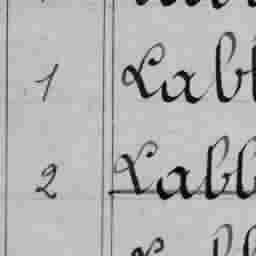 1 Labb
2 Labb